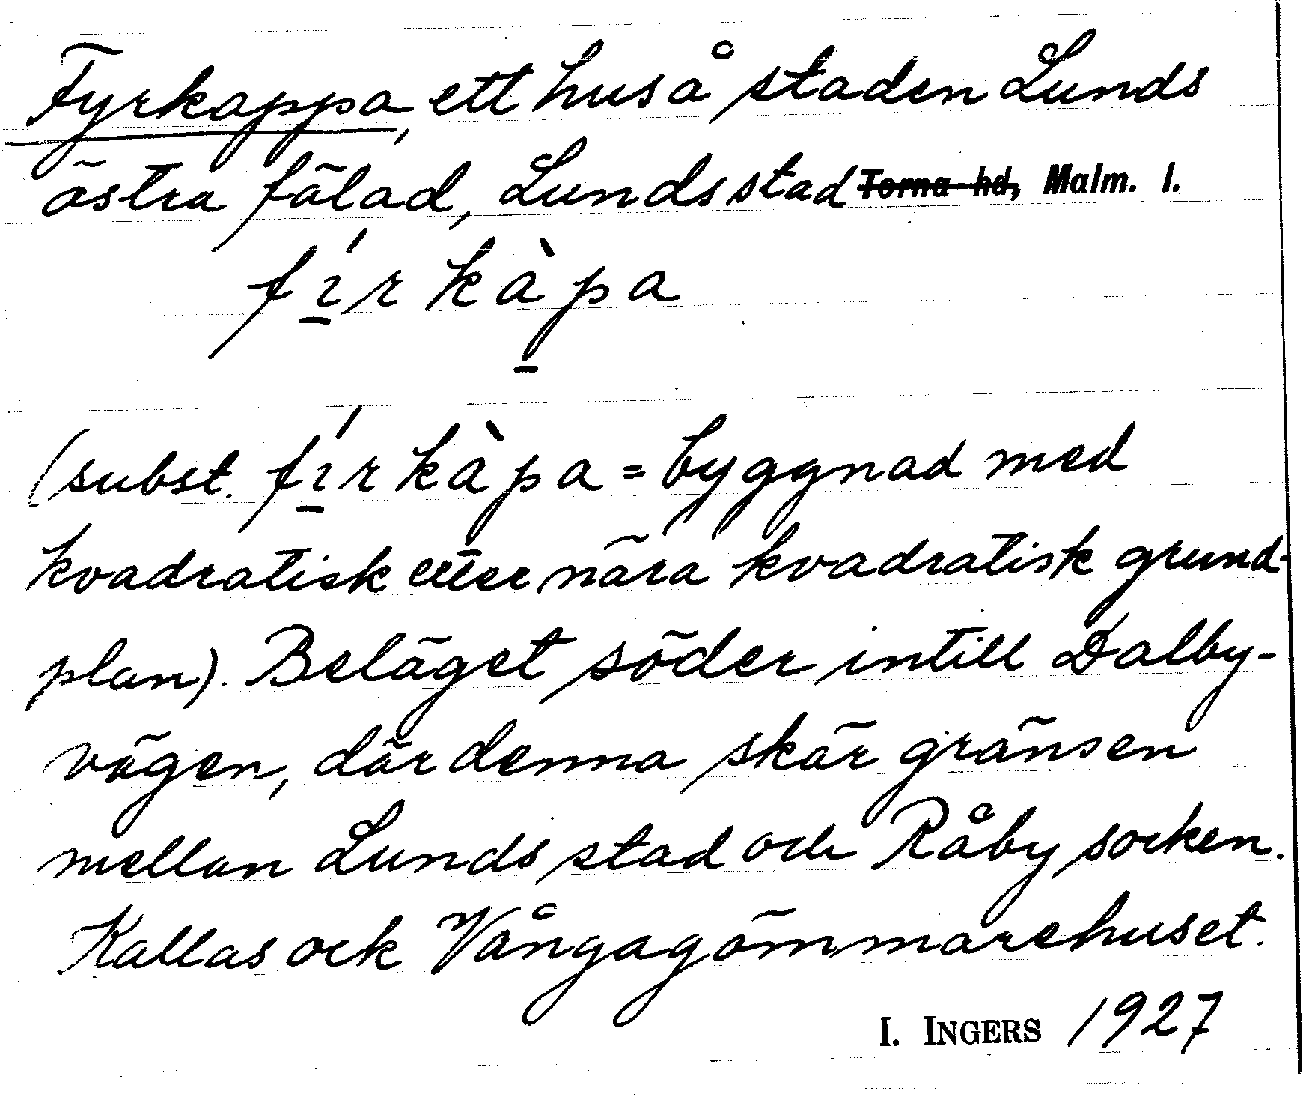 Fyrkappa, ett hus å staden Lunds
östra fälad, Lunds stad Torna hd, Malm. l.
fírkàpa
(subst. fírkàpa = byggnad med
kvadratisk eller nära kvadratisk grund-
plan). Beläget söder intill Dalby-
vägen, där denna skär gränsen
mellan Lunds stad och Råby socken.
Kallas ock Vångagömmarehuset.
I. INGERS 1927